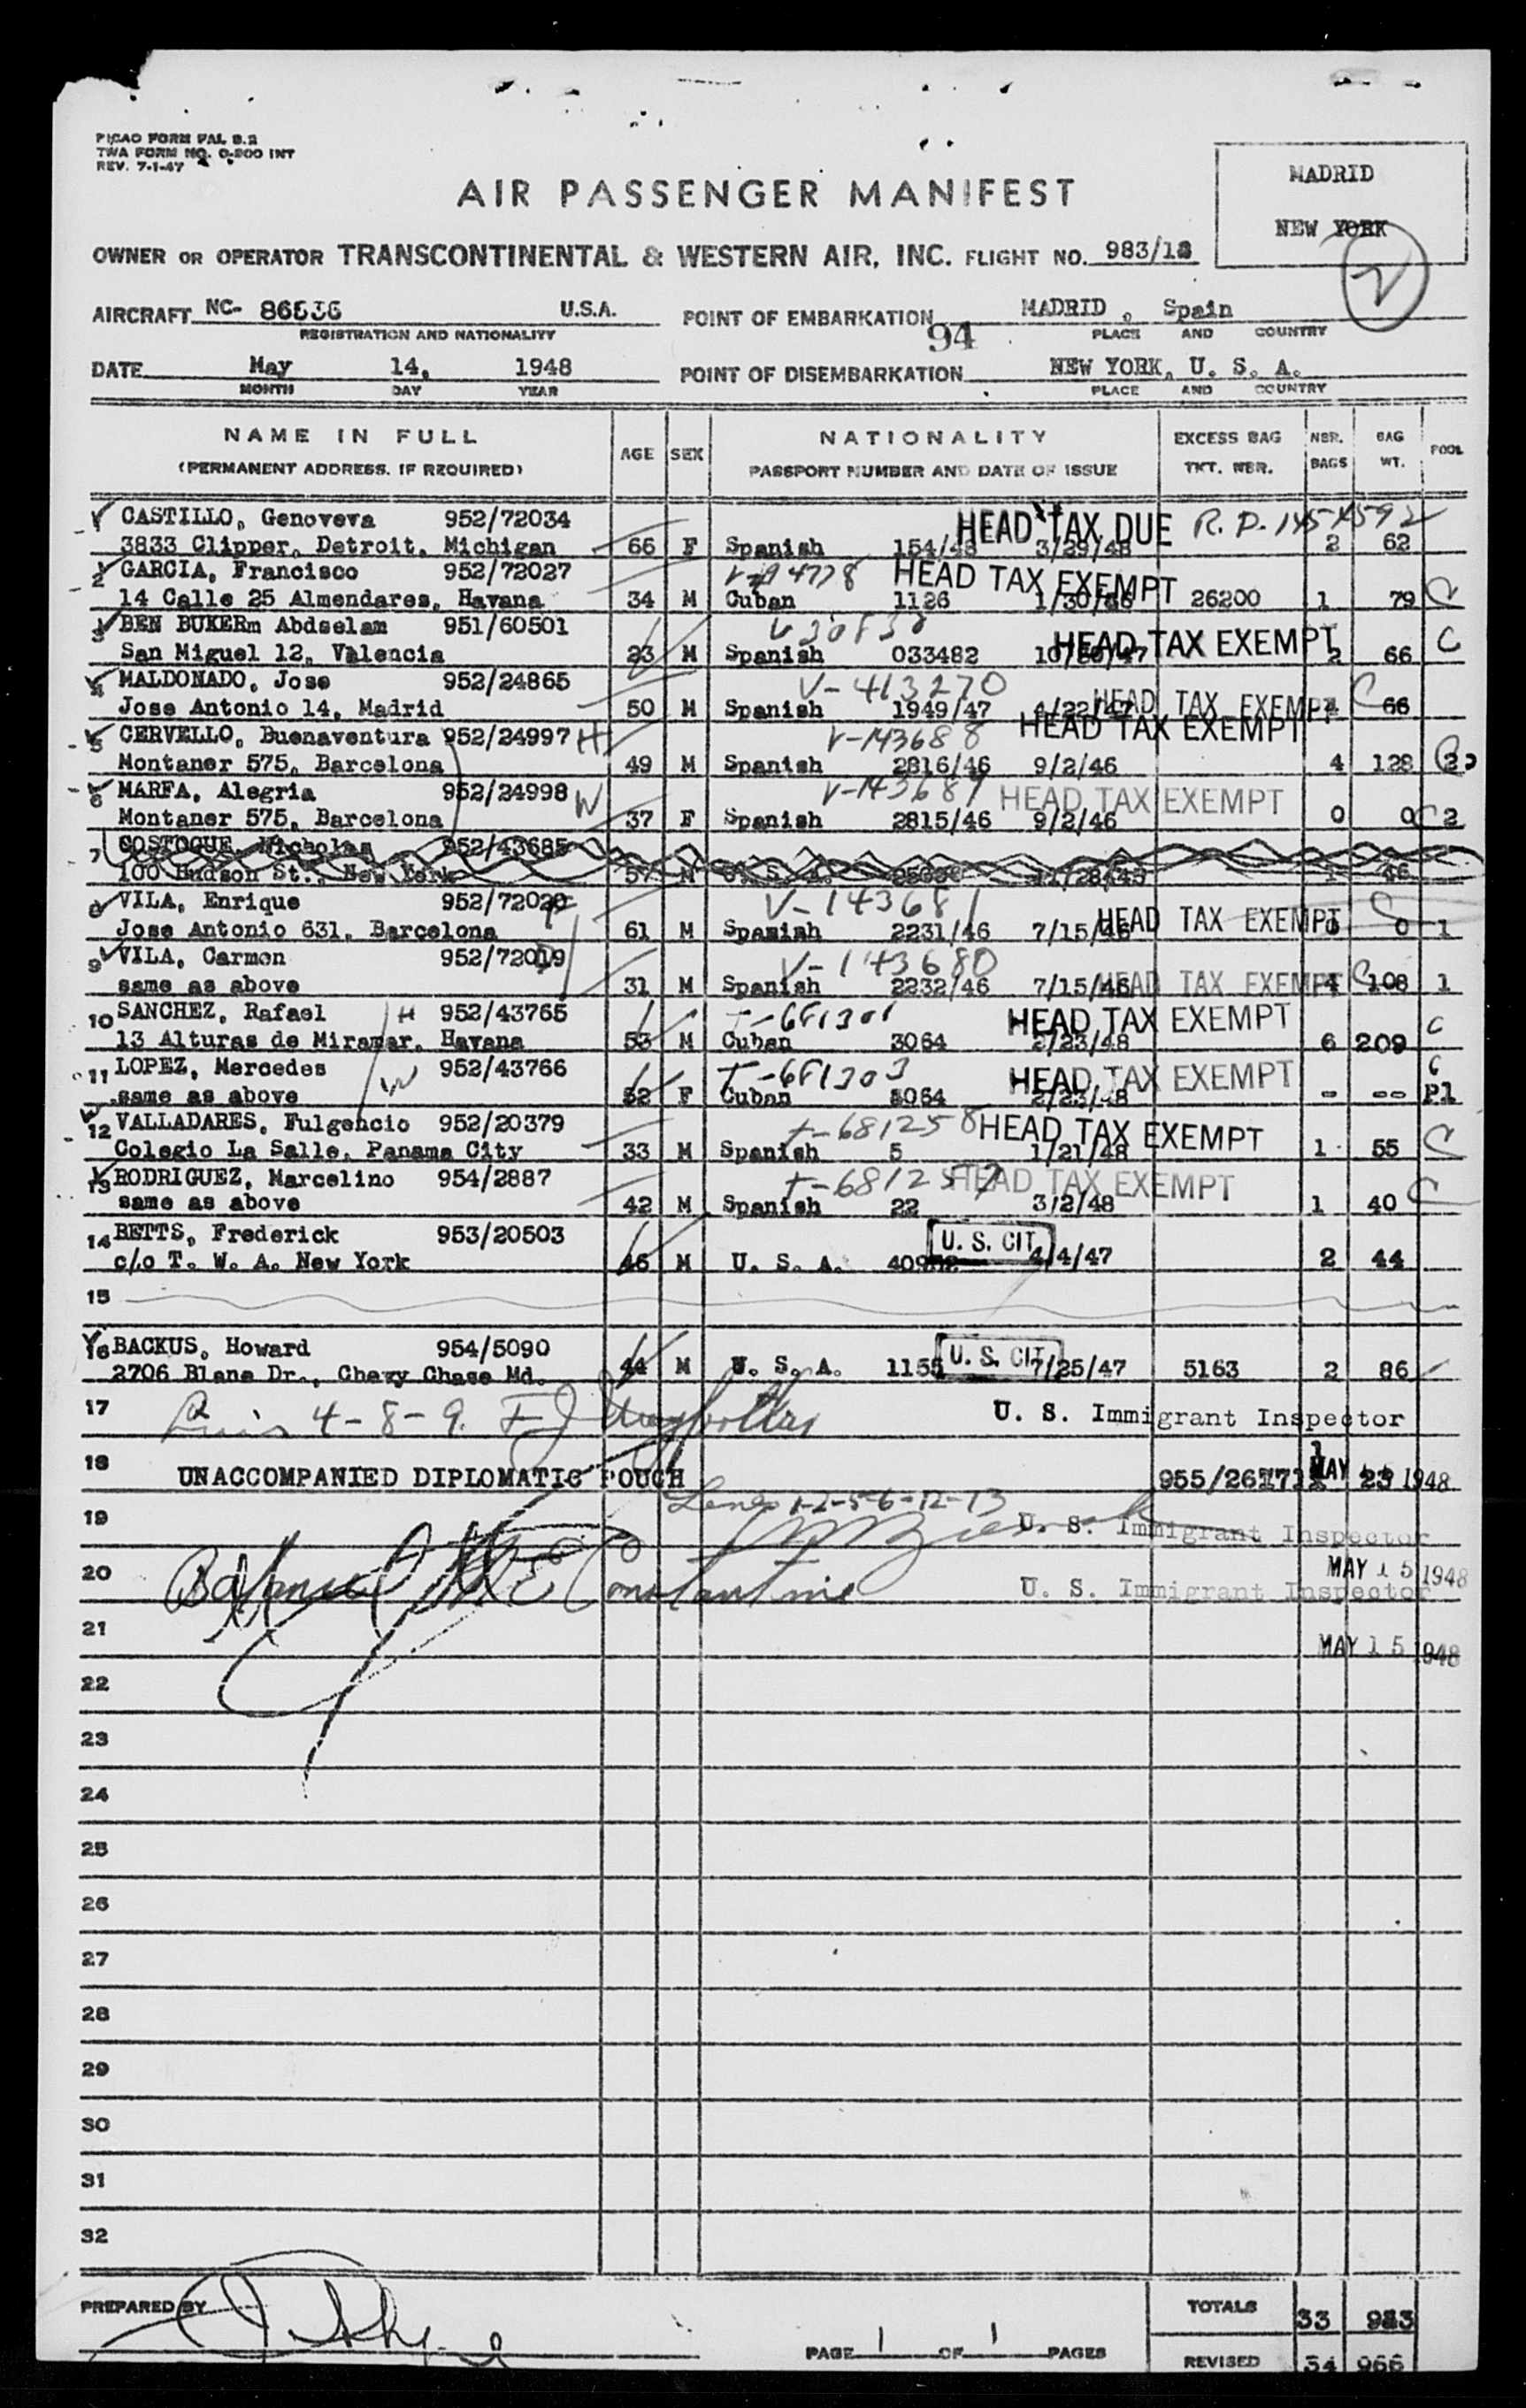 PICAO FORM PAL 9.2
TWA FORM NO. O-200 INT
REV. 7-1-47
AIR PASSENGER MANIFEST
MADRID
NEW YORK
2
OWNER OR OPERATOR TRANSCONTINENTAL & WESTERN AIR, INC. FLIGHT NO. 983/13
AIRCRAFT NC- 86536 U.S.A.
REGISTRATION AND NATIONALITY
POINT OF EMBARKATION MADRID, Spain
PLACE AND COUNTRY
94
DATE May 14, 1948
MONTH DAY YEAR
POINT OF DISEMBARKATION NEW YORK, U. S. A.
PLACE AND COUNTRY
NAME IN FULL AGE SEX NATIONALITY EXCESS BAG NBR. BAG POOL
(PERMANENT ADDRESS, IF REQUIRED) PASSPORT NUMBER AND DATE OF ISSUE TKT. NBR. BAGS WT.
1 CASTILLO, Genoveva 952/72034 HEAD TAX DUE R.P.
3833 Clipper, Detroit, Michigan 66 F Spanish 154/48 3/29/48 2 62
2 GARCIA, Francisco 952/72027 HEAD TAX EXEMPT
14 Calle 25 Almendares, Havana 34 M Cuban 1126 26200 1 79 C
3 BEN BUKERm Abdselam 951/60501 HEAD TAX EXEMPT C
San Miguel 12, Valencia 23 M Spanish 033482 2 66
4 MALDONADO, Jose 952/24865 V-413270 HEAD TAX EXEMPT C
Jose Antonio 14, Madrid 50 M Spanish 1949/47 4/22/47 66
5 CERVELLO, Buenaventura 952/24997 H V-143688 HEAD TAX EXEMPT
Montaner 575, Barcelona 49 M Spanish 2816/46 9/2/46 4 128 2
6 MARFA, Alegria 952/24998 W V-143687 HEAD TAX EXEMPT
Montaner 575, Barcelona 37 F Spanish 2815/46 9/2/46 0 0 C 2
7 COSTOGUE, Nicholas 952/43685
100 Hudson St., New York 57 M U. S. A. 46
8 VILA, Enrique 952/72020 V-143681 HEAD TAX EXEMPT C
Jose Antonio 631, Barcelona 61 M Spanish 2231/46 7/15/46 0 0 1
9 VILA, Carmen 952/72019 V-143680 HEAD TAX EXEMPT C
same as above 31 M Spanish 2232/46 7/15/46 4 108 1
10 SANCHEZ, Rafael H 952/43765 T-681301 HEAD TAX EXEMPT C
13 Alturas de Miramar, Havana 53 M Cuban 3064 2/23/48 6 209
11 LOPEZ, Mercedes W 952/43766 T-681303 HEAD TAX EXEMPT C
same as above 52 F Cuban 3064 2/23/48 - -- Pl
12 VALLADARES, Fulgencio 952/20379 T-681258 HEAD TAX EXEMPT
Colegio La Salle, Panama City 33 M Spanish 5 1/21/48 1 55 C
13 RODRIGUEZ, Marcelino 954/2887 T-681257 HEAD TAX EXEMPT
same as above 42 M Spanish 22 3/2/48 1 40 C
14 BETTS, Frederick 953/20503 U. S. CIT.
c/o T. W. A. New York 46 M U. S. A. 4/4/47 2 44
15
16 BACKUS, Howard 954/5090 U. S. CIT.
2706 Blane Dr., Chevy Chase Md. 44 M U. S. A. 1155 7/25/47 5163 2 86
17 4-8-9 U. S. Immigrant Inspector
18 UNACCOMPANIED DIPLOMATIC POUCH 1 23 MAY 15 1948
Lines 1-2-5-6-12-13
19 U. S. Immigrant Inspector
20 Constantine U. S. Immigrant Inspector
MAY 15 1948
21 MAY 15 1948
22
23
24
25
26
27
28
29
30
31
32
PREPARED BY
TOTALS 33 983
PAGE 1 OF 1 PAGES
REVISED 34 966